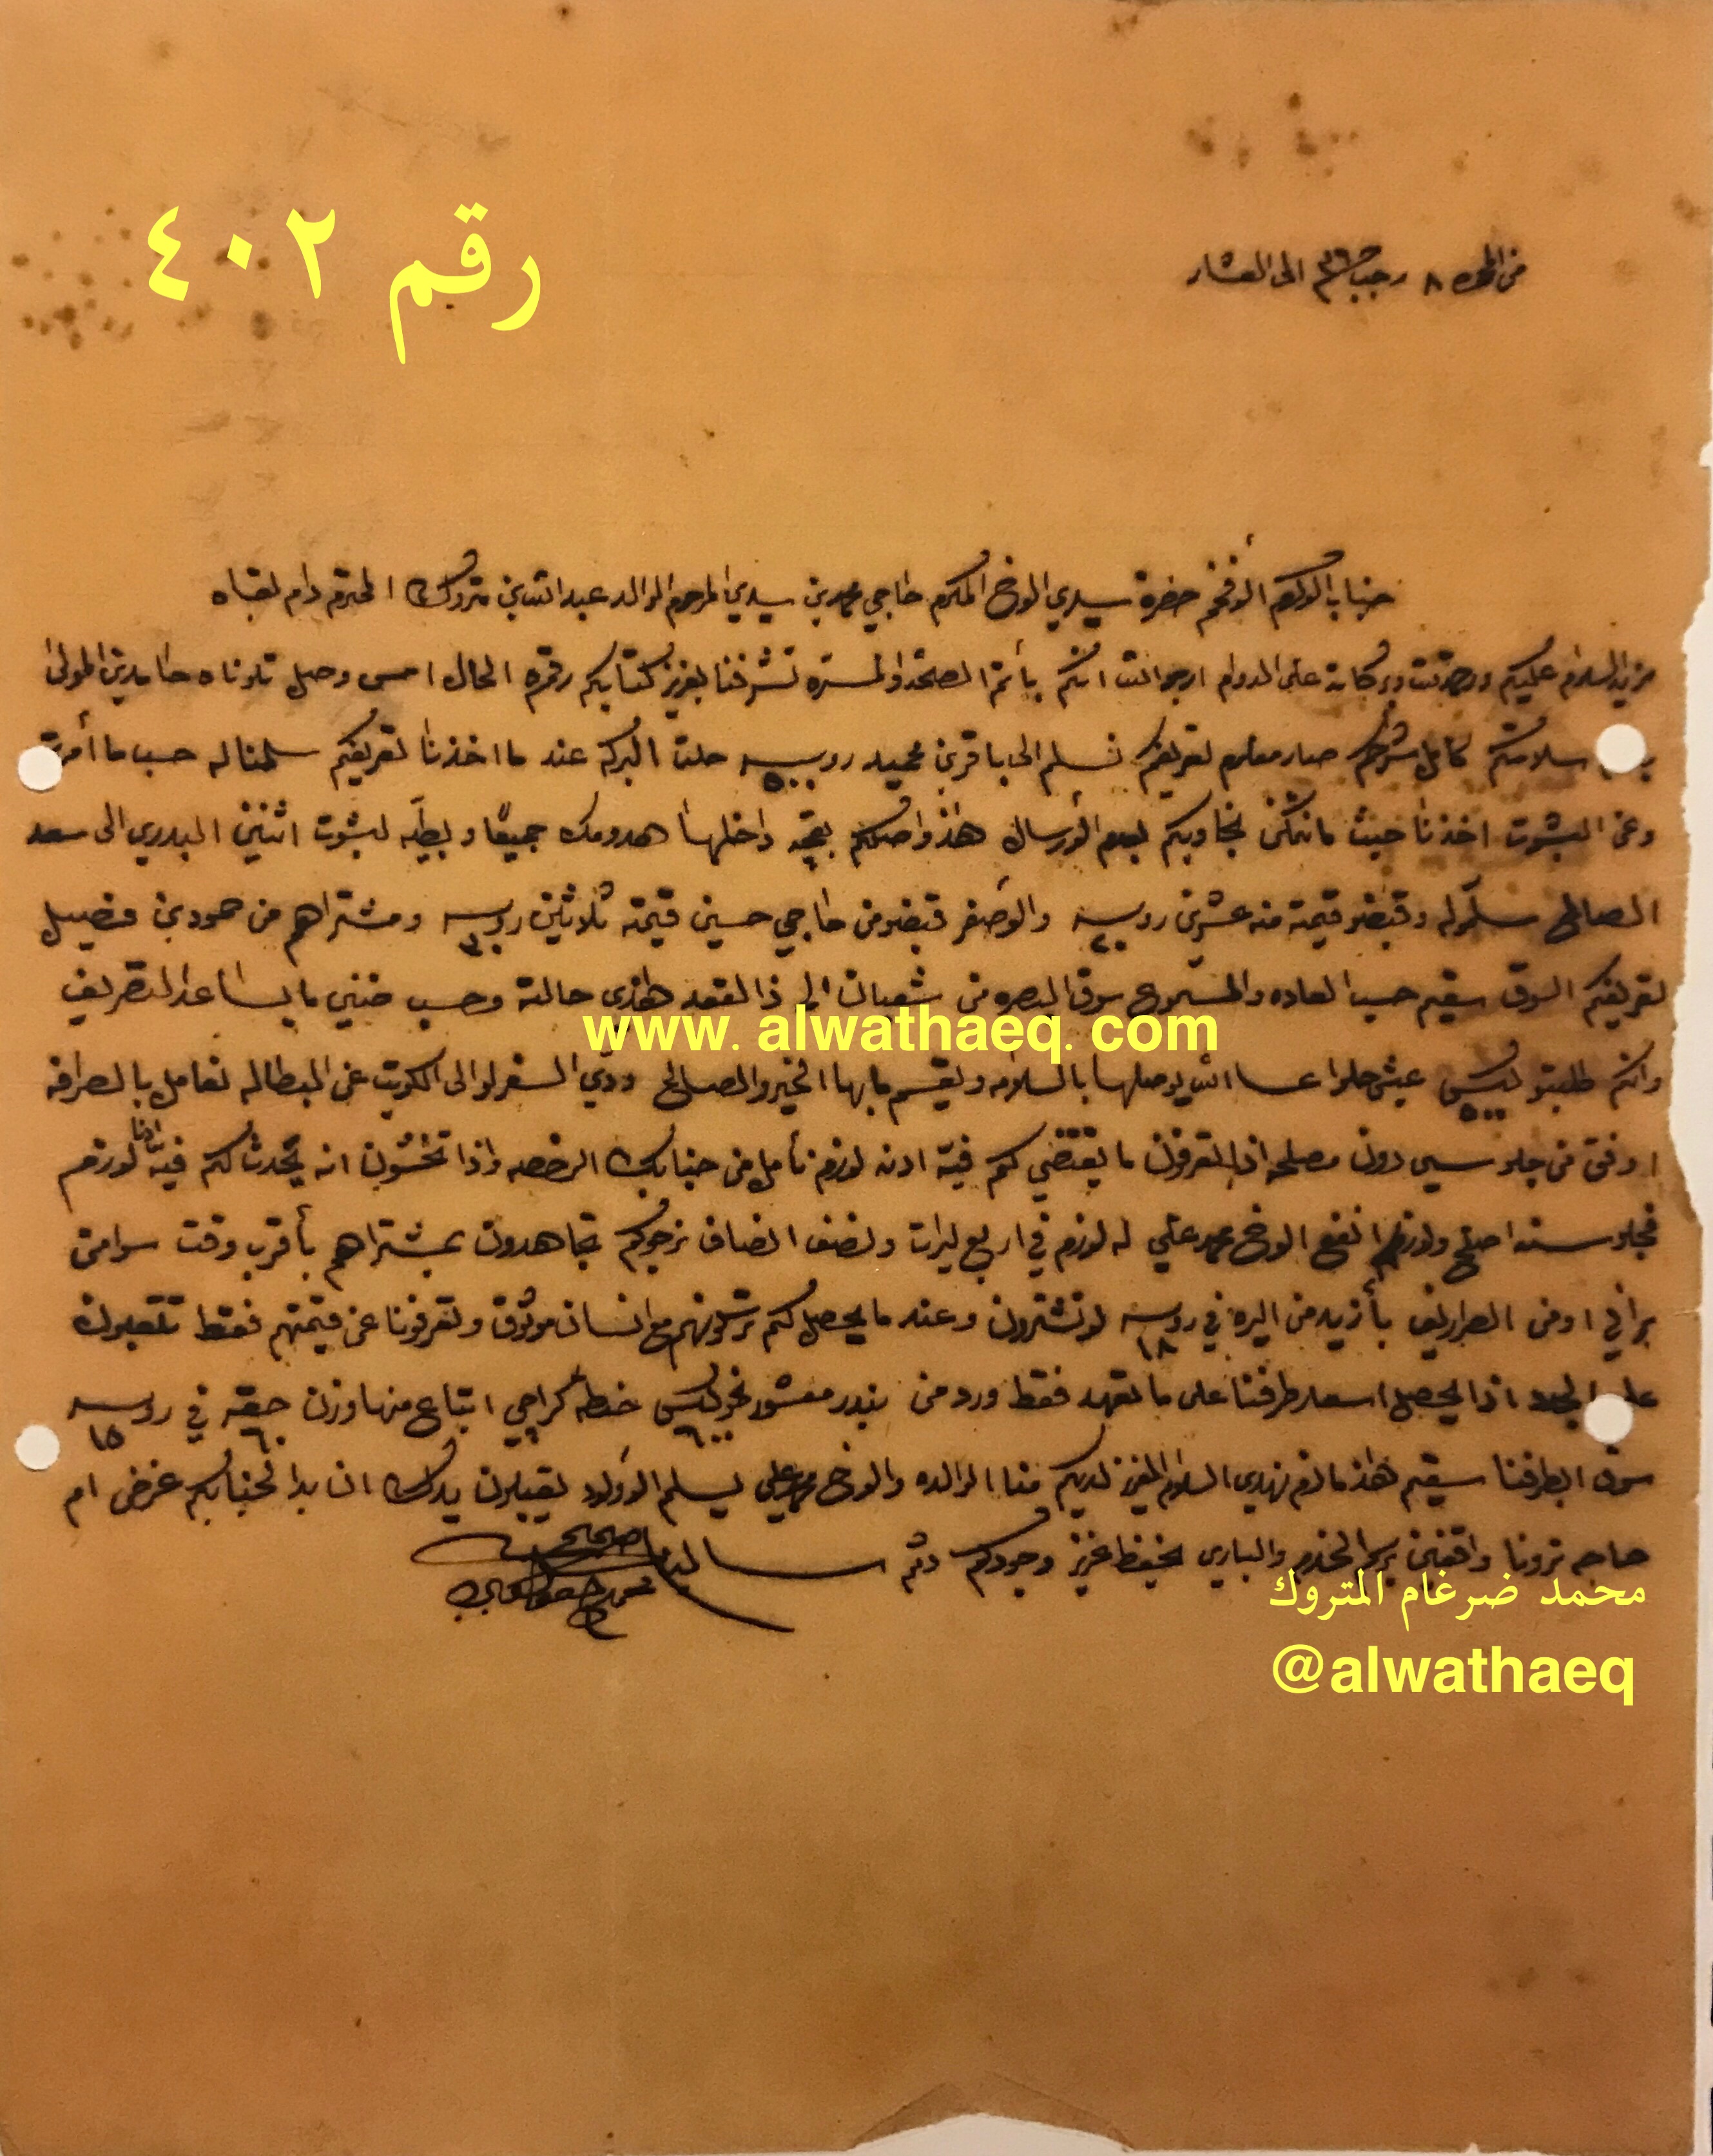 رقم ٤٠٢
من المحمره ٨ رجب ٣٦ الى العشار
جناب الاكرم الافخم حضرة سيدي الاخ المكرم حاجي محمد بن سيدي المرحوم الوالد عبدالله بن متروك المحترم دام بقاه
مزيد السلام عليكم ورحمة الله وبركاته على الدوام ارجو الله انكم بأتم الصحة والمسره تشرفنا بعزيز كتابكم رقمره الحال امس وصل تلوناه حامدين المولى
سلامتكم كامل شرحكم صار معلوم تعريفكم نسلم الى باقر بن حميد روبيه ٥٠٠ حلت البركه عند ما اخذنا تعريفكم سلمنا له حسب ما أمرت
وعن البشوت اخذنا حيث ما نمكن نجاوبكم لعدم الارسال هذا واصلكم بقچه داخلها هدومك جميعًا وبطيّه بشوت اثنين البدري الى سعد
الصالح سلّموله وقبضو قيمته منه عشرين روبيه ٢٠ والاصفر قبضو من حاجي حسين قيمته ثلاثين روبيه ٣٠ ومشتراهم من حمود بن فضيل
تعريفكم السوق سقيم حسب العاده والمسموع سوق البصره من شعبان الى ذا القعده هاذي حالته وحسب ما يساعد التصريف
www. alwathaeq. com
وانكم طلبتو ٥٠٠ عيش حلوا عسا الله يوصلها بالسلامه ويقسم بها الخير والصالح ودي السفر لو الى الكويت عن البطاله نعامل بالصرافه
اوفق من جلوسي دون مصلحه اذا تعرفون ما يقتضي لكم فيه ادنا لازم نأمل من جنابك الرخصه واذا تخشون انه يحدث لكم فيه ادنا لازم
فجلوسنا اصلح ولازم انفع الاخ محمد علي له لازم في اربع ليرات ونصف انصاف نرجوكم تجاهدون بمشتراهم بأقرب وقت سوا من
براني او من الصراريف بأزيد من اليره في روبيه ١٨ لا تشترون وعند ما يحصل لكم ترسلونهم مع انسان موثوق وتعرفونا عن قيمتهم فقط تتعبون
على اذا يحصل اسعار طرفنا على ما تعهد فقط ورد من بندر معشور نحو ٦٠٠ حنطة كراچي ابتاع منها وزن حقة ٦٠ في روبيه ١٥
سوق ابطرفنا سقيم هذا ما لزم نهدي السلام العزيز لديكم منا الوالده والاخ محمد علي يسلم الاولاد يقبلون يدك ان بدا لجنابكم غرض ام
حاجه ترونا واقفين برسم الخدم والباري يحفظ عزيز وجودكم دمتم سالمين
صحيح
محمد ضرغام المتروك
@alwathaeq